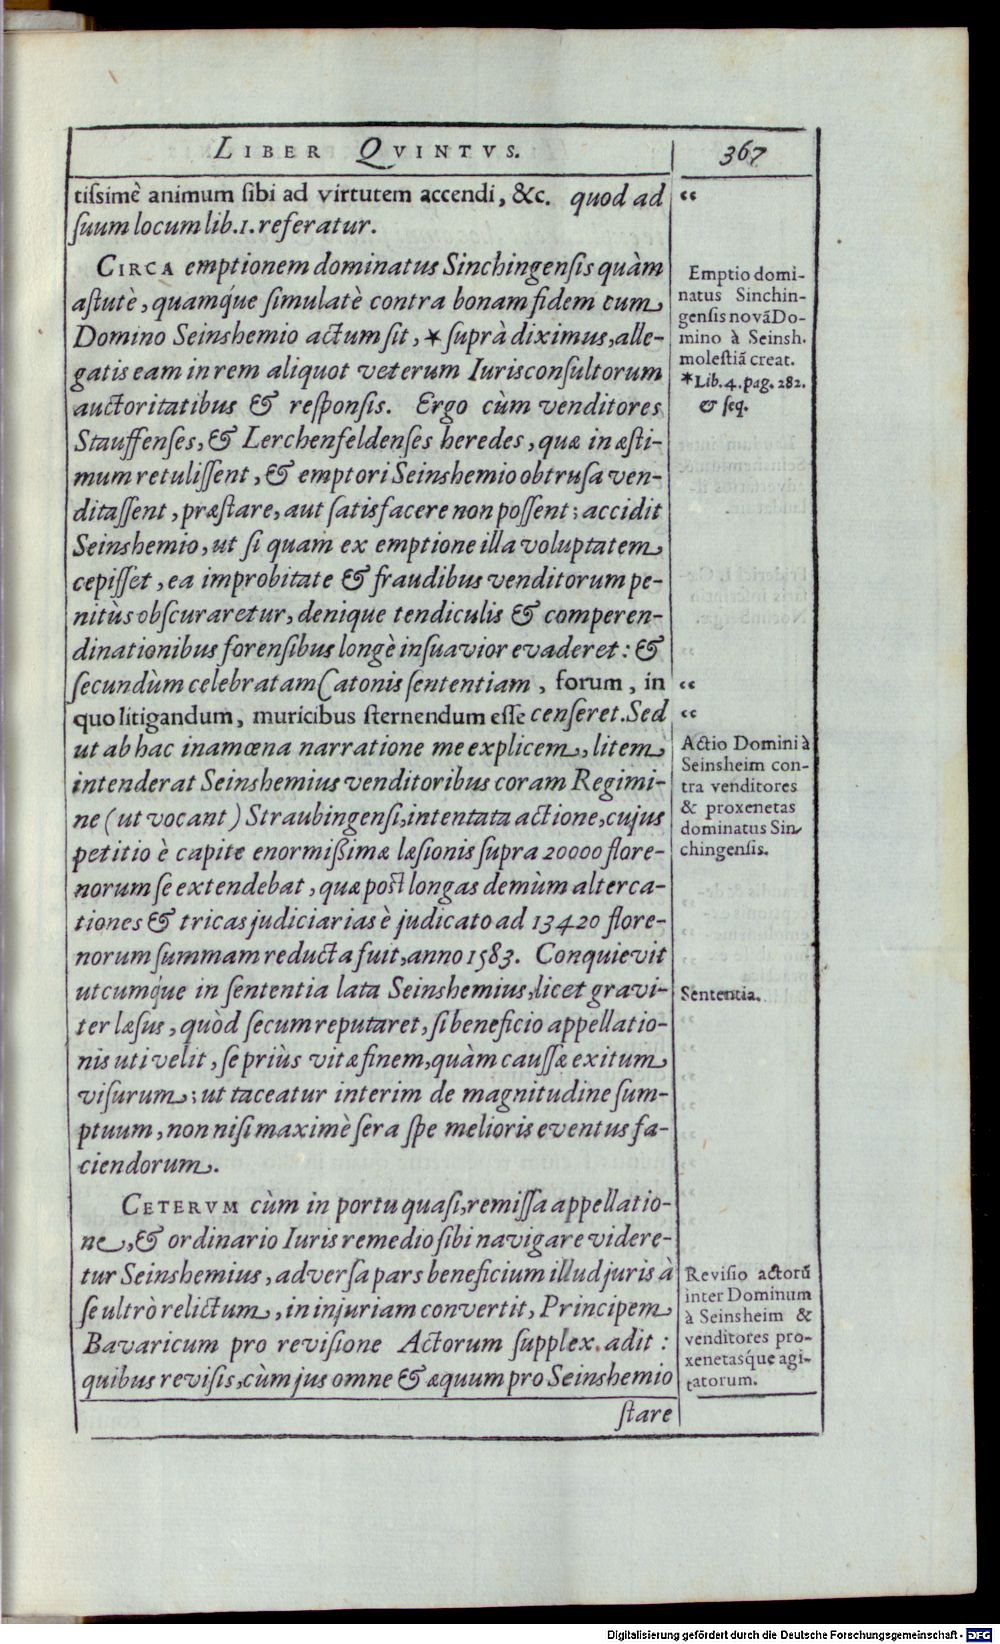 LIBER QVINTVS.
367
tissimè animum sibi ad virtutem accendi, &c. quod ad
suum locum lib.1. referatur.
CIRCA emptionem dominatus Sinchingensis quàm
astutè, quamq́ue simulatè contra bonam fidem cum
Domino Seinshemio actum sit, * suprà diximus, alle-
gatis eam in rem aliquot veterum Iurisconsultorum
auctoritatibus & responsis. Ergo cùm venditores
Stauffenses, & Lerchenfeldenses heredes, quæ in æsti-
mum retulissent, & emptori Seinshemio obtrusa ven-
ditassent, præstare, aut satisfacere non possent; accidit
Seinshemio, ut si quam ex emptione illa voluptatem
cepisset, ea improbitate & fraudibus venditorum pe-
nitùs obscuraretur, denique tendiculis & comperen-
dinationibus forensibus longè insuavior evaderet: &
secundùm celebratam Catonis sententiam, forum, in
quo litigandum, muricibus sternendum esse censeret. Sed
ut ab hac inamœna narratione me explicem, litem
intenderat Seinshemius venditoribus coram Regimi-
ne (ut vocant) Straubingensi, intentata actione, cujus
petitio è capite enormißimæ læsionis supra 20000 flore-
norum se extendebat, quæ post longas demùm alterca-
tiones & tricas judiciarias è judicato ad 13420 flore-
norum summam reducta fuit, anno 1583. Conquievit
utcumq́ue in sententia lata Seinshemius, licet gravi-
ter læsus, quòd secum reputaret, si beneficio appellatio-
nis uti velit, se priùs vitæ finem, quàm caussæ exitum
visurum; ut taceatur interim de magnitudine sum-
ptuum, non nisi maximè sera spe melioris eventus fa-
ciendorum.
CETERVM cùm in portu quasi, remissa appellatio-
ne, & ordinario Iuris remedio sibi navigare videre-
tur Seinshemius, adversa pars beneficium illud juris à
se ultrò relictum, in injuriam convertit, Principem
Bavaricum pro revisione Actorum supplex adit:
quibus revisis, cùm jus omne & æquum pro Seinshemio
stare
“
Emptio domi-
natus Sinchin-
gensis novã Do-
mino à Seinsh.
molestiã creat.
*Lib. 4. pag. 282.
& seq.
“
“
Actio Domini à
Seinsheim con-
tra venditores
& proxenetas
dominatus Sin-
chingensis.
Sententia.
Revisio actorũ
inter Dominum
à Seinsheim &
venditores pro-
xenetasq́ue agi-
tatorum.
Digitalisierung gefördert durch die Deutsche Forschungsgemeinschaft - DFG